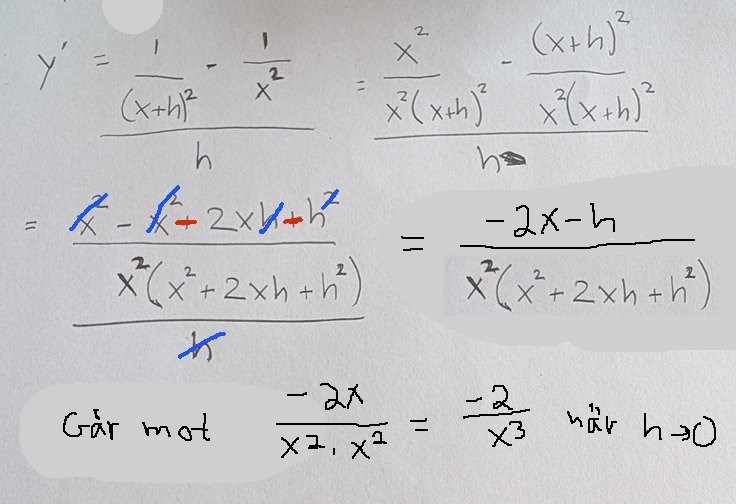 y' = (1/(x+h)² - 1/x²)/h = (x²/(x²(x+h)²) - (x+h)²/(x²(x+h)²))/h
= ((x² - x² - 2xh - h²)/(x²(x² + 2xh + h²)))/h = (-2x-h)/(x²(x² + 2xh + h²))
Går mot (-2x)/(x² · x²) = (-2)/(x³) när h→0